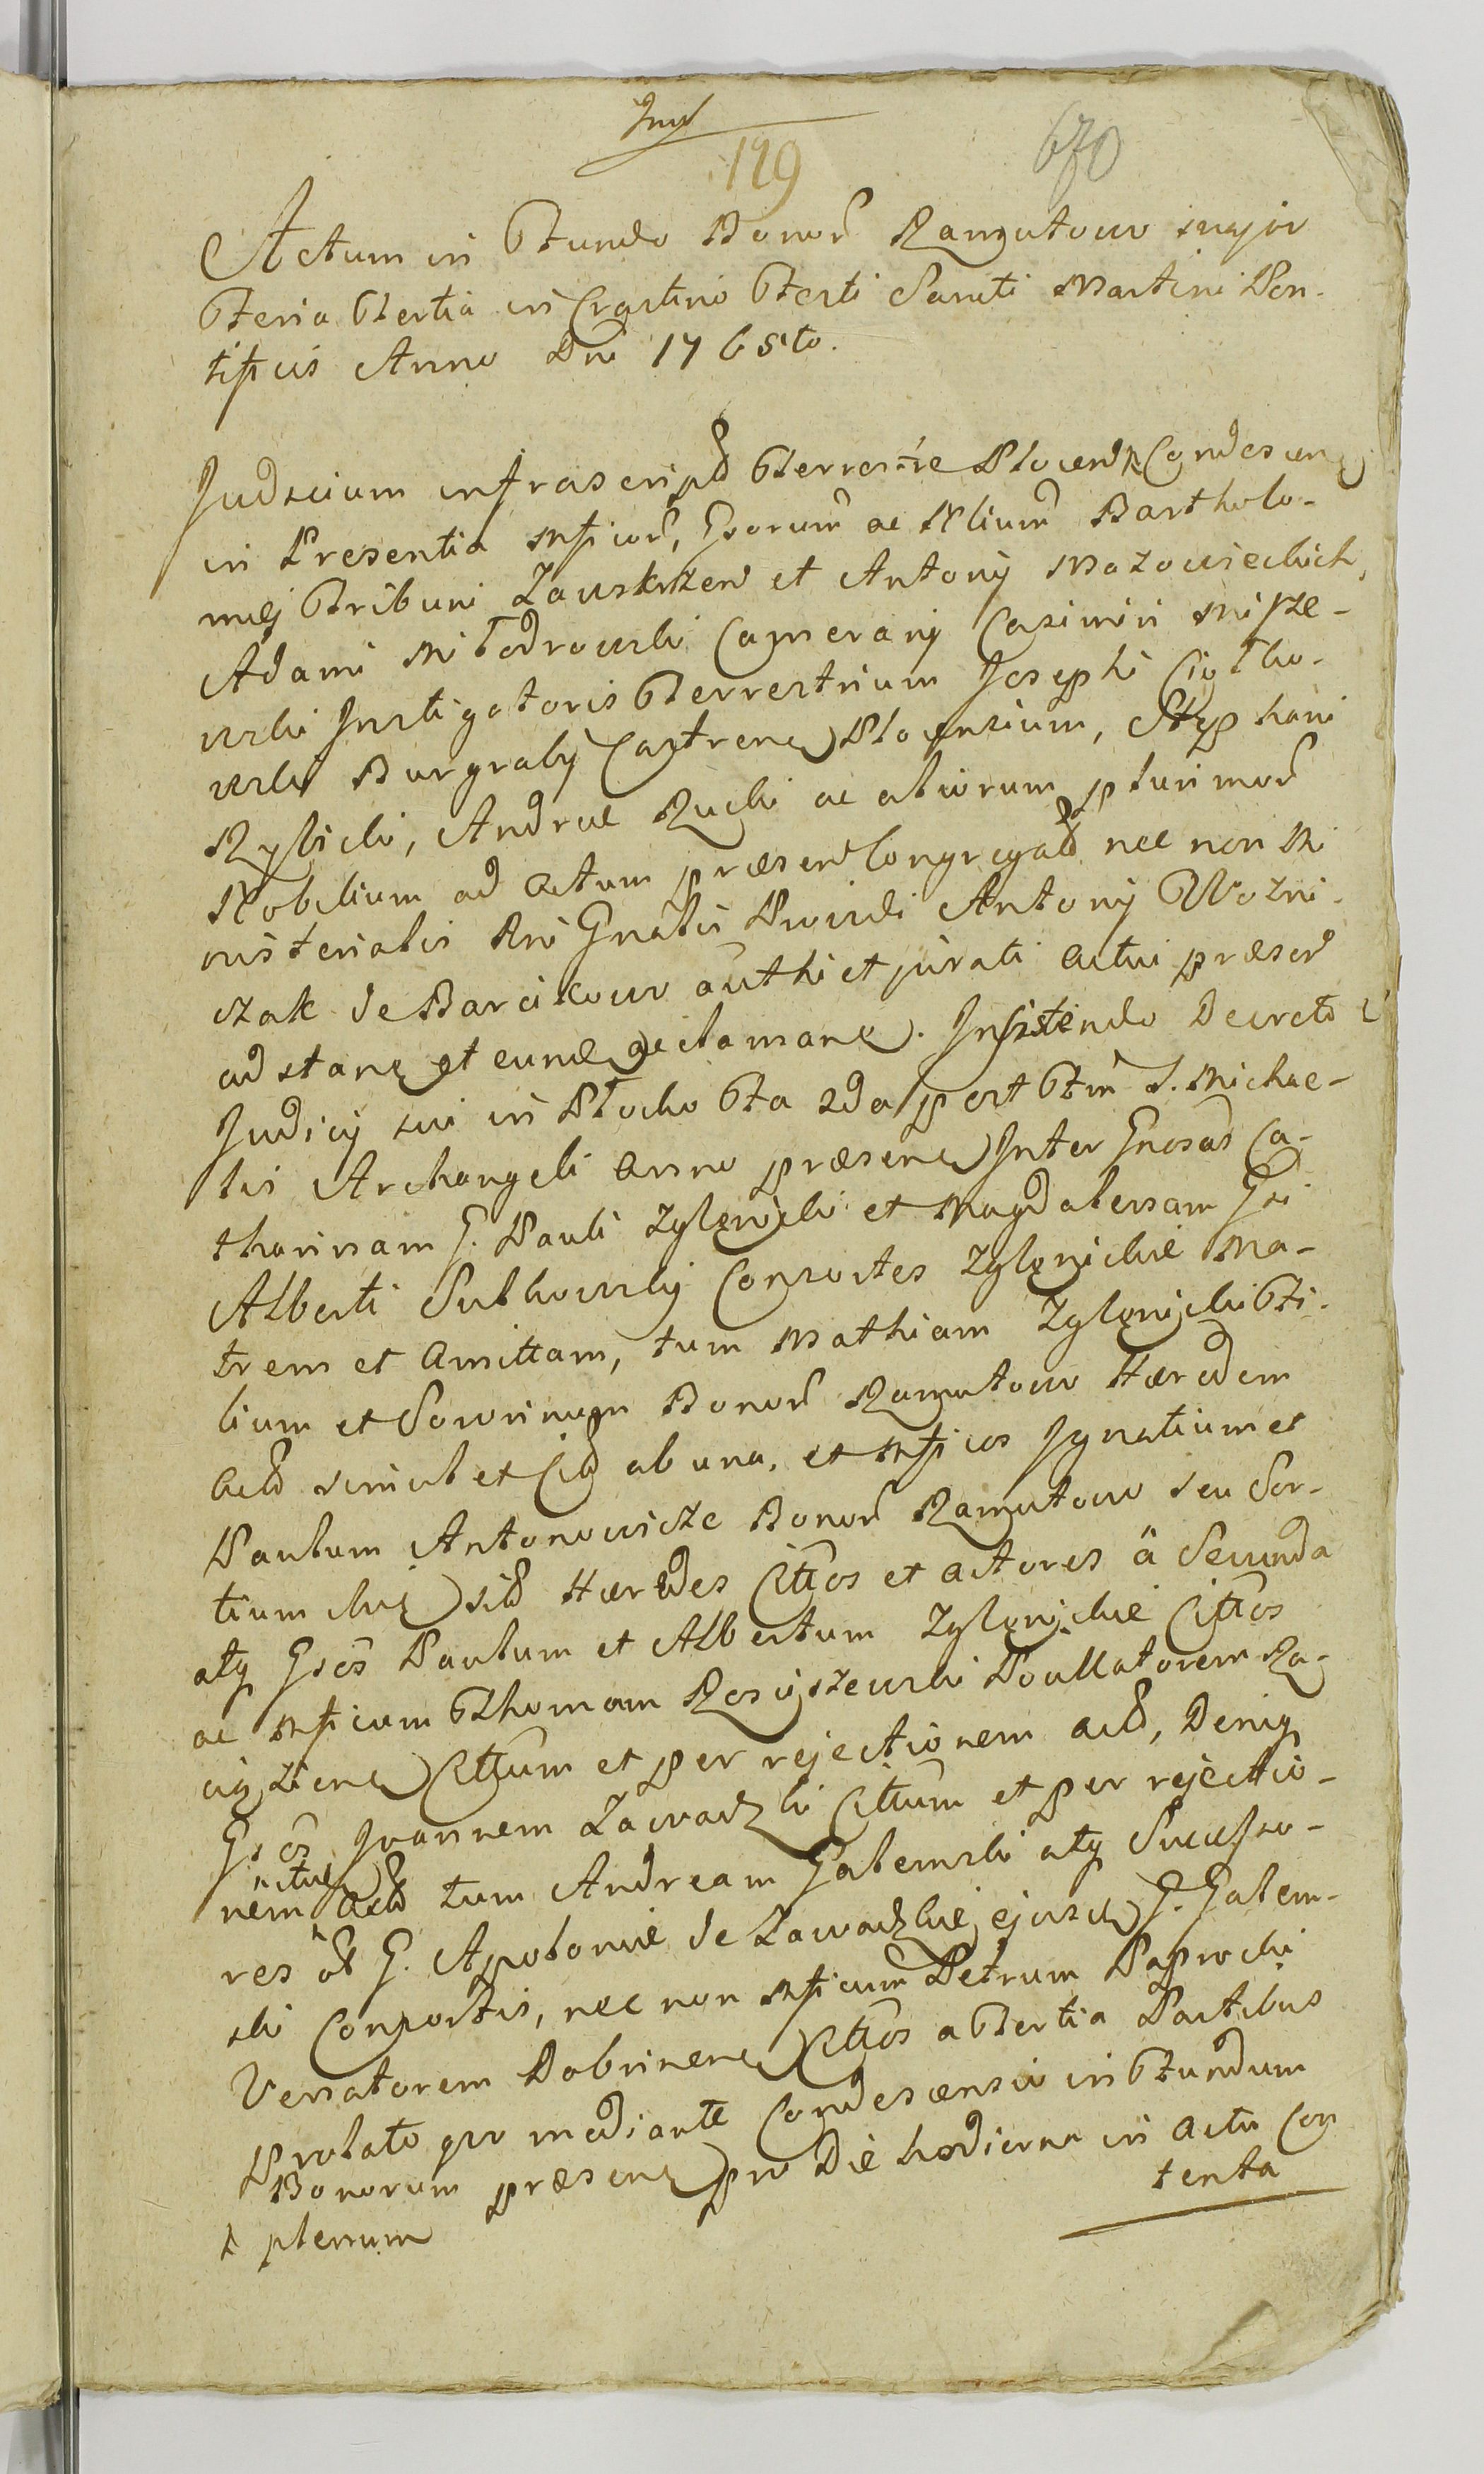 129
670
Actum in Fundo Bonor Ramutowo major
Feria Tertia in Crastino Festi Sancti Martini Pon-
tificis Anno Dni 1765to.
Judicium infrascript Terrestre Plocen Condescen
in Presentia Mficor, Gsorum ac Nlium Bartholo-
mej Tribuni Zawskrzen et Antonij Mazowieckich,
Adami Młodrowski Camerarij Casimiri Misze-
wski Instigatoris Terrestrium Josephi Ciołko-
wski Burgrabij Castren Plocensium, Stephani
Rybicki, Andreae Rucki ac aliorum plurimor
Nobilium ad actum praesen Congregat nec non Mi
nisterialis Rni Gnalis Providi Antonij Wozni-
czak de Barcikowo authi et jurati actui praesen
adstan et eum acclaman. Insistendo Decreto
Judicij sui in Płocko fta 2da post ftm S. Michae-
lis Archangeli anno praesen Inter Gnosas Ca-
tharinam G. Pauli Zglenicki et Magdalenam Gsi
Alberti Sulkowskij Consortes Zglenickie Ma-
trem et Amittam, tum Mathiam Zglenicki Fi-
lium et Sororinum Bonor Ramutowo Haeredem
act simul et Cit ab una, et Mficos Ignatium et
Paulum Antonowicze Bonor Ramutowo seu Sor-
tium haeredes Cittos et actores a Secunda
atq Gsos Paulum et Albertum Zglenickie Cittos
ac Mficum Thomam Rosciszewski Pocillatorem Ra-
ciązien Cittum et per rejectionem act, Deniq
Gsos Joannem Zawadzki Cittum et per rejectio-
nem act tum Andream Galemski atq Successo-
res G. Apoloniae de Zawadzkie ejusd G. Galem-
ski Consortis, nec non Mficum Petrum Paprocki
Venatorem Dobrinen Cittos a Tertia Partibus
prolato quo mediante Condescensio in Fundum
Bonorum praesen pro Die hodierna in actu Con
tenta
plenum